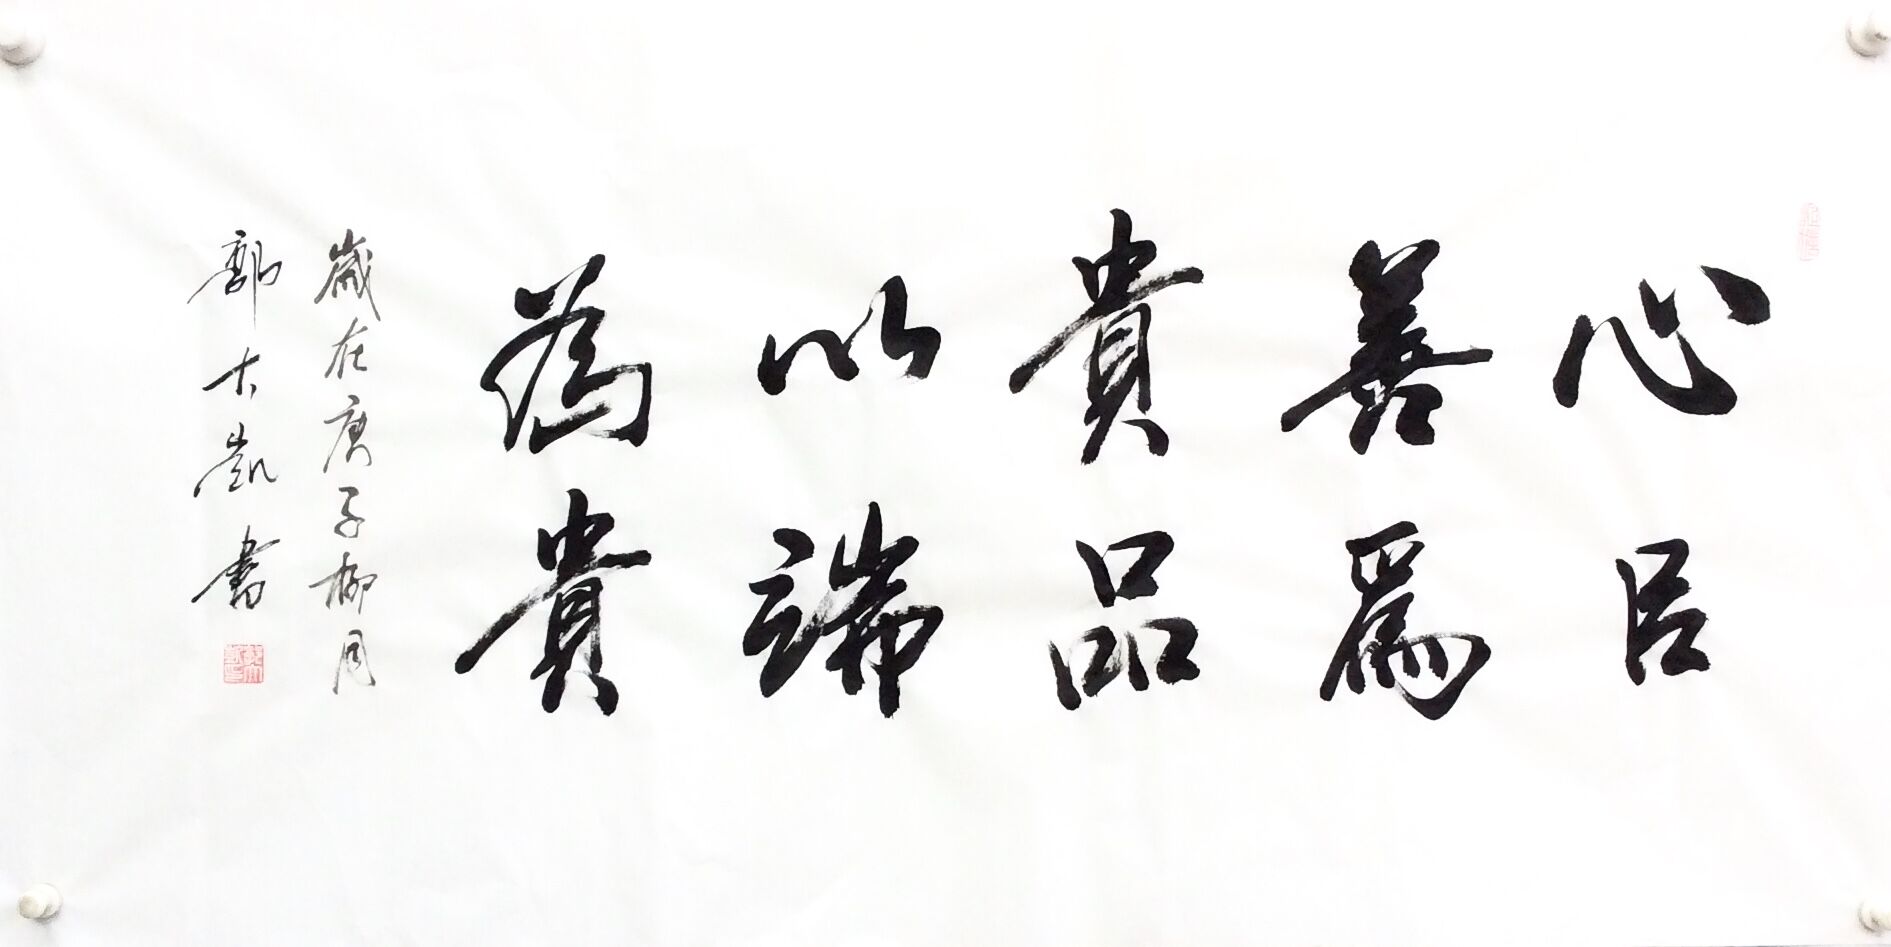 心㠯
善爲
貴品
以端
為貴
歲在庚子柳月
郭大凱書